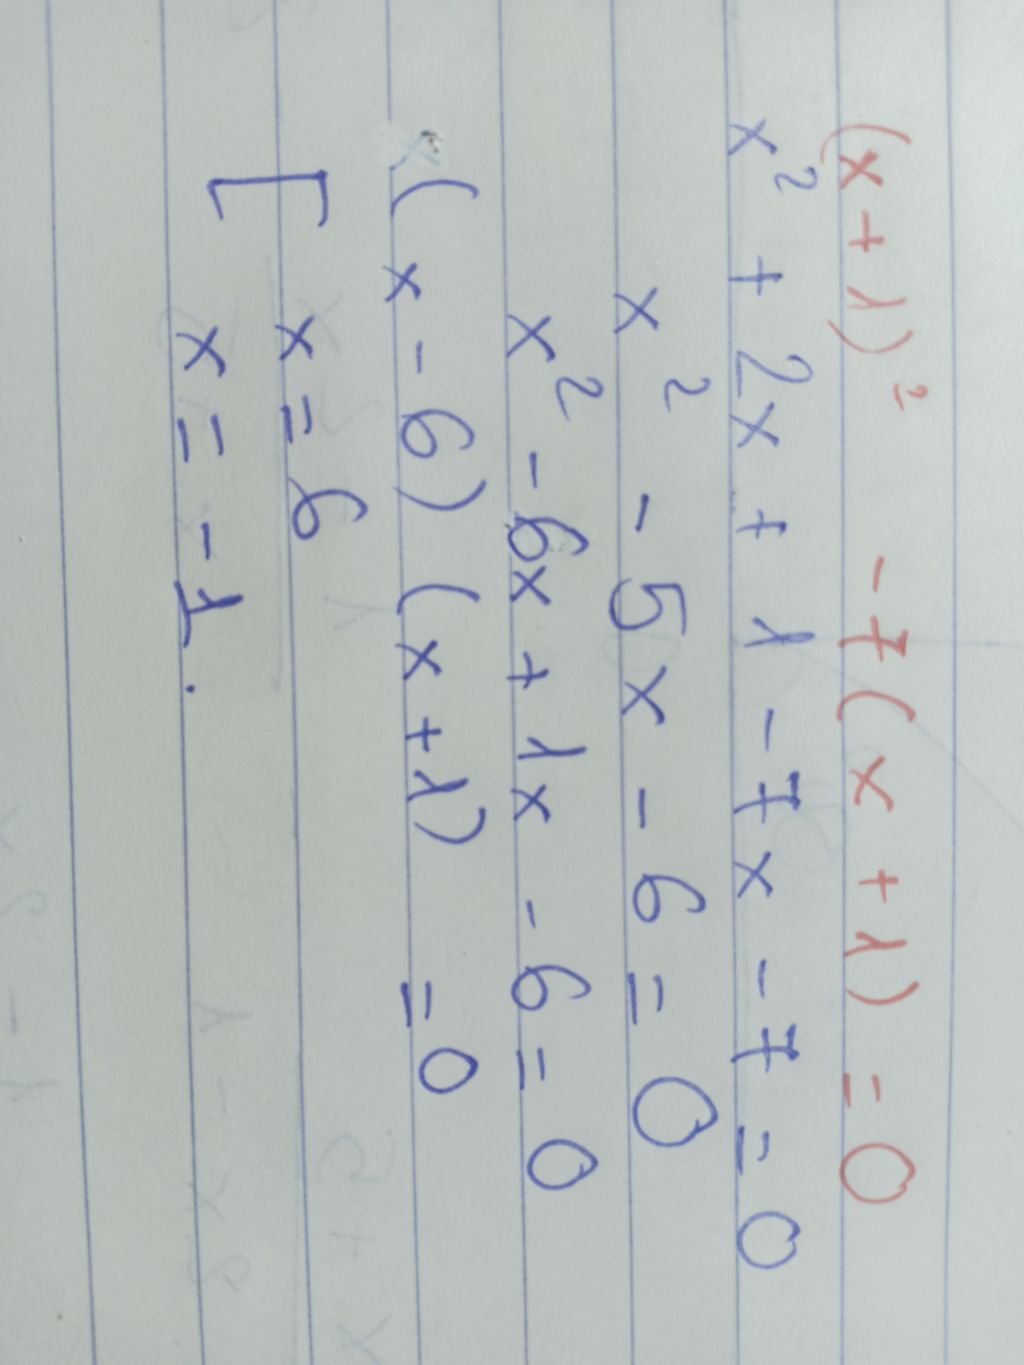 (x + 1)² - 7(x + 1) = 0
x² + 2x + 1 - 7x - 7 = 0
x² - 5x - 6 = 0
x² - 6x + 1x - 6 = 0
(x - 6)(x + 1) = 0
[ x = 6
x = -1.